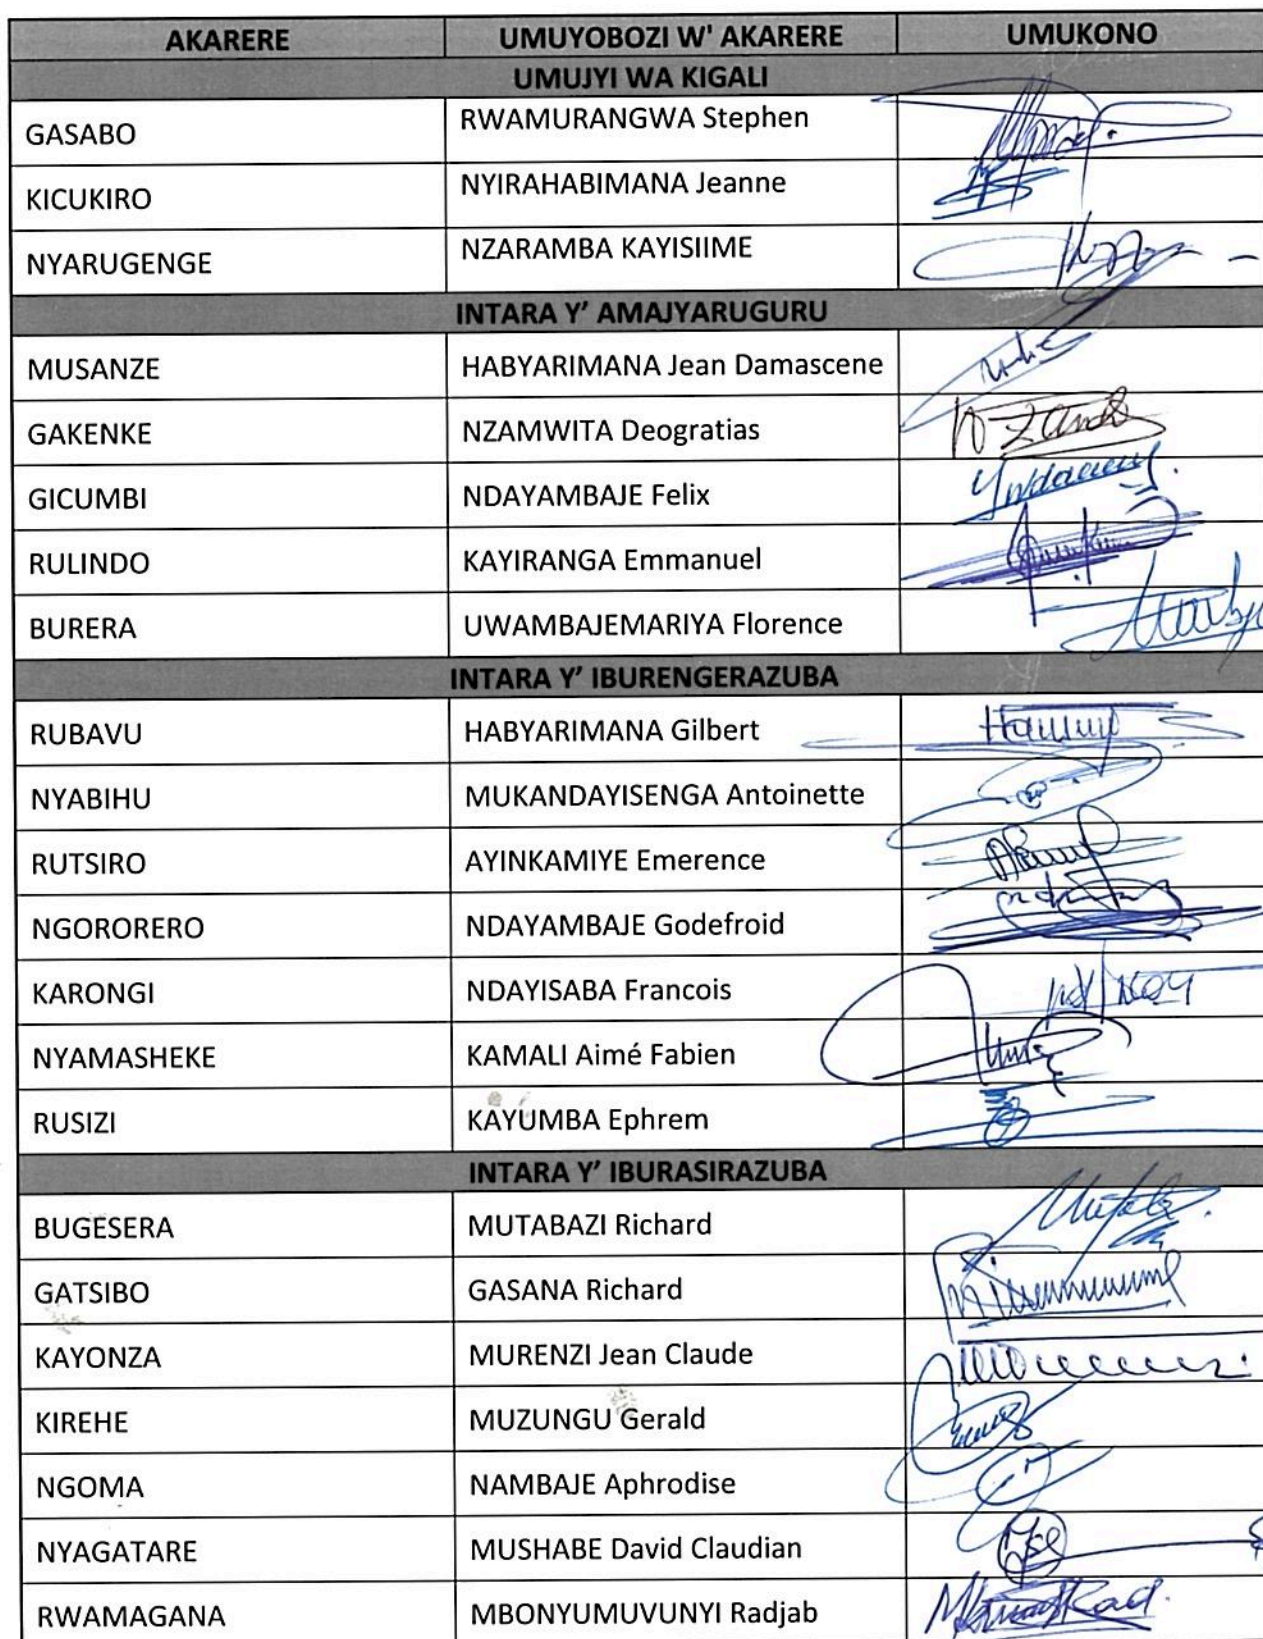 AKARERE UMUYOBOZI W' AKARERE UMUKONO
UMUJYI WA KIGALI
GASABO RWAMURANGWA Stephen
KICUKIRO NYIRAHABIMANA Jeanne
NYARUGENGE NZARAMBA KAYISIIME
INTARA Y’ AMAJYARUGURU
MUSANZE HABYARIMANA Jean Damascene
GAKENKE NZAMWITA Deogratias
GICUMBI NDAYAMBAJE Felix
RULINDO KAYIRANGA Emmanuel
BURERA UWAMBAJEMARIYA Florence
INTARA Y’ IBURENGERAZUBA
RUBAVU HABYARIMANA Gilbert
NYABIHU MUKANDAYISENGA Antoinette
RUTSIRO AYINKAMIYE Emerence
NGORORERO NDAYAMBAJE Godefroid
KARONGI NDAYISABA Francois
NYAMASHEKE KAMALI Aimé Fabien
RUSIZI KAYUMBA Ephrem
INTARA Y’ IBURASIRAZUBA
BUGESERA MUTABAZI Richard
GATSIBO GASANA Richard
KAYONZA MURENZI Jean Claude
KIREHE MUZUNGU Gerald
NGOMA NAMBAJE Aphrodise
NYAGATARE MUSHABE David Claudian
RWAMAGANA MBONYUMUVUNYI Radjab